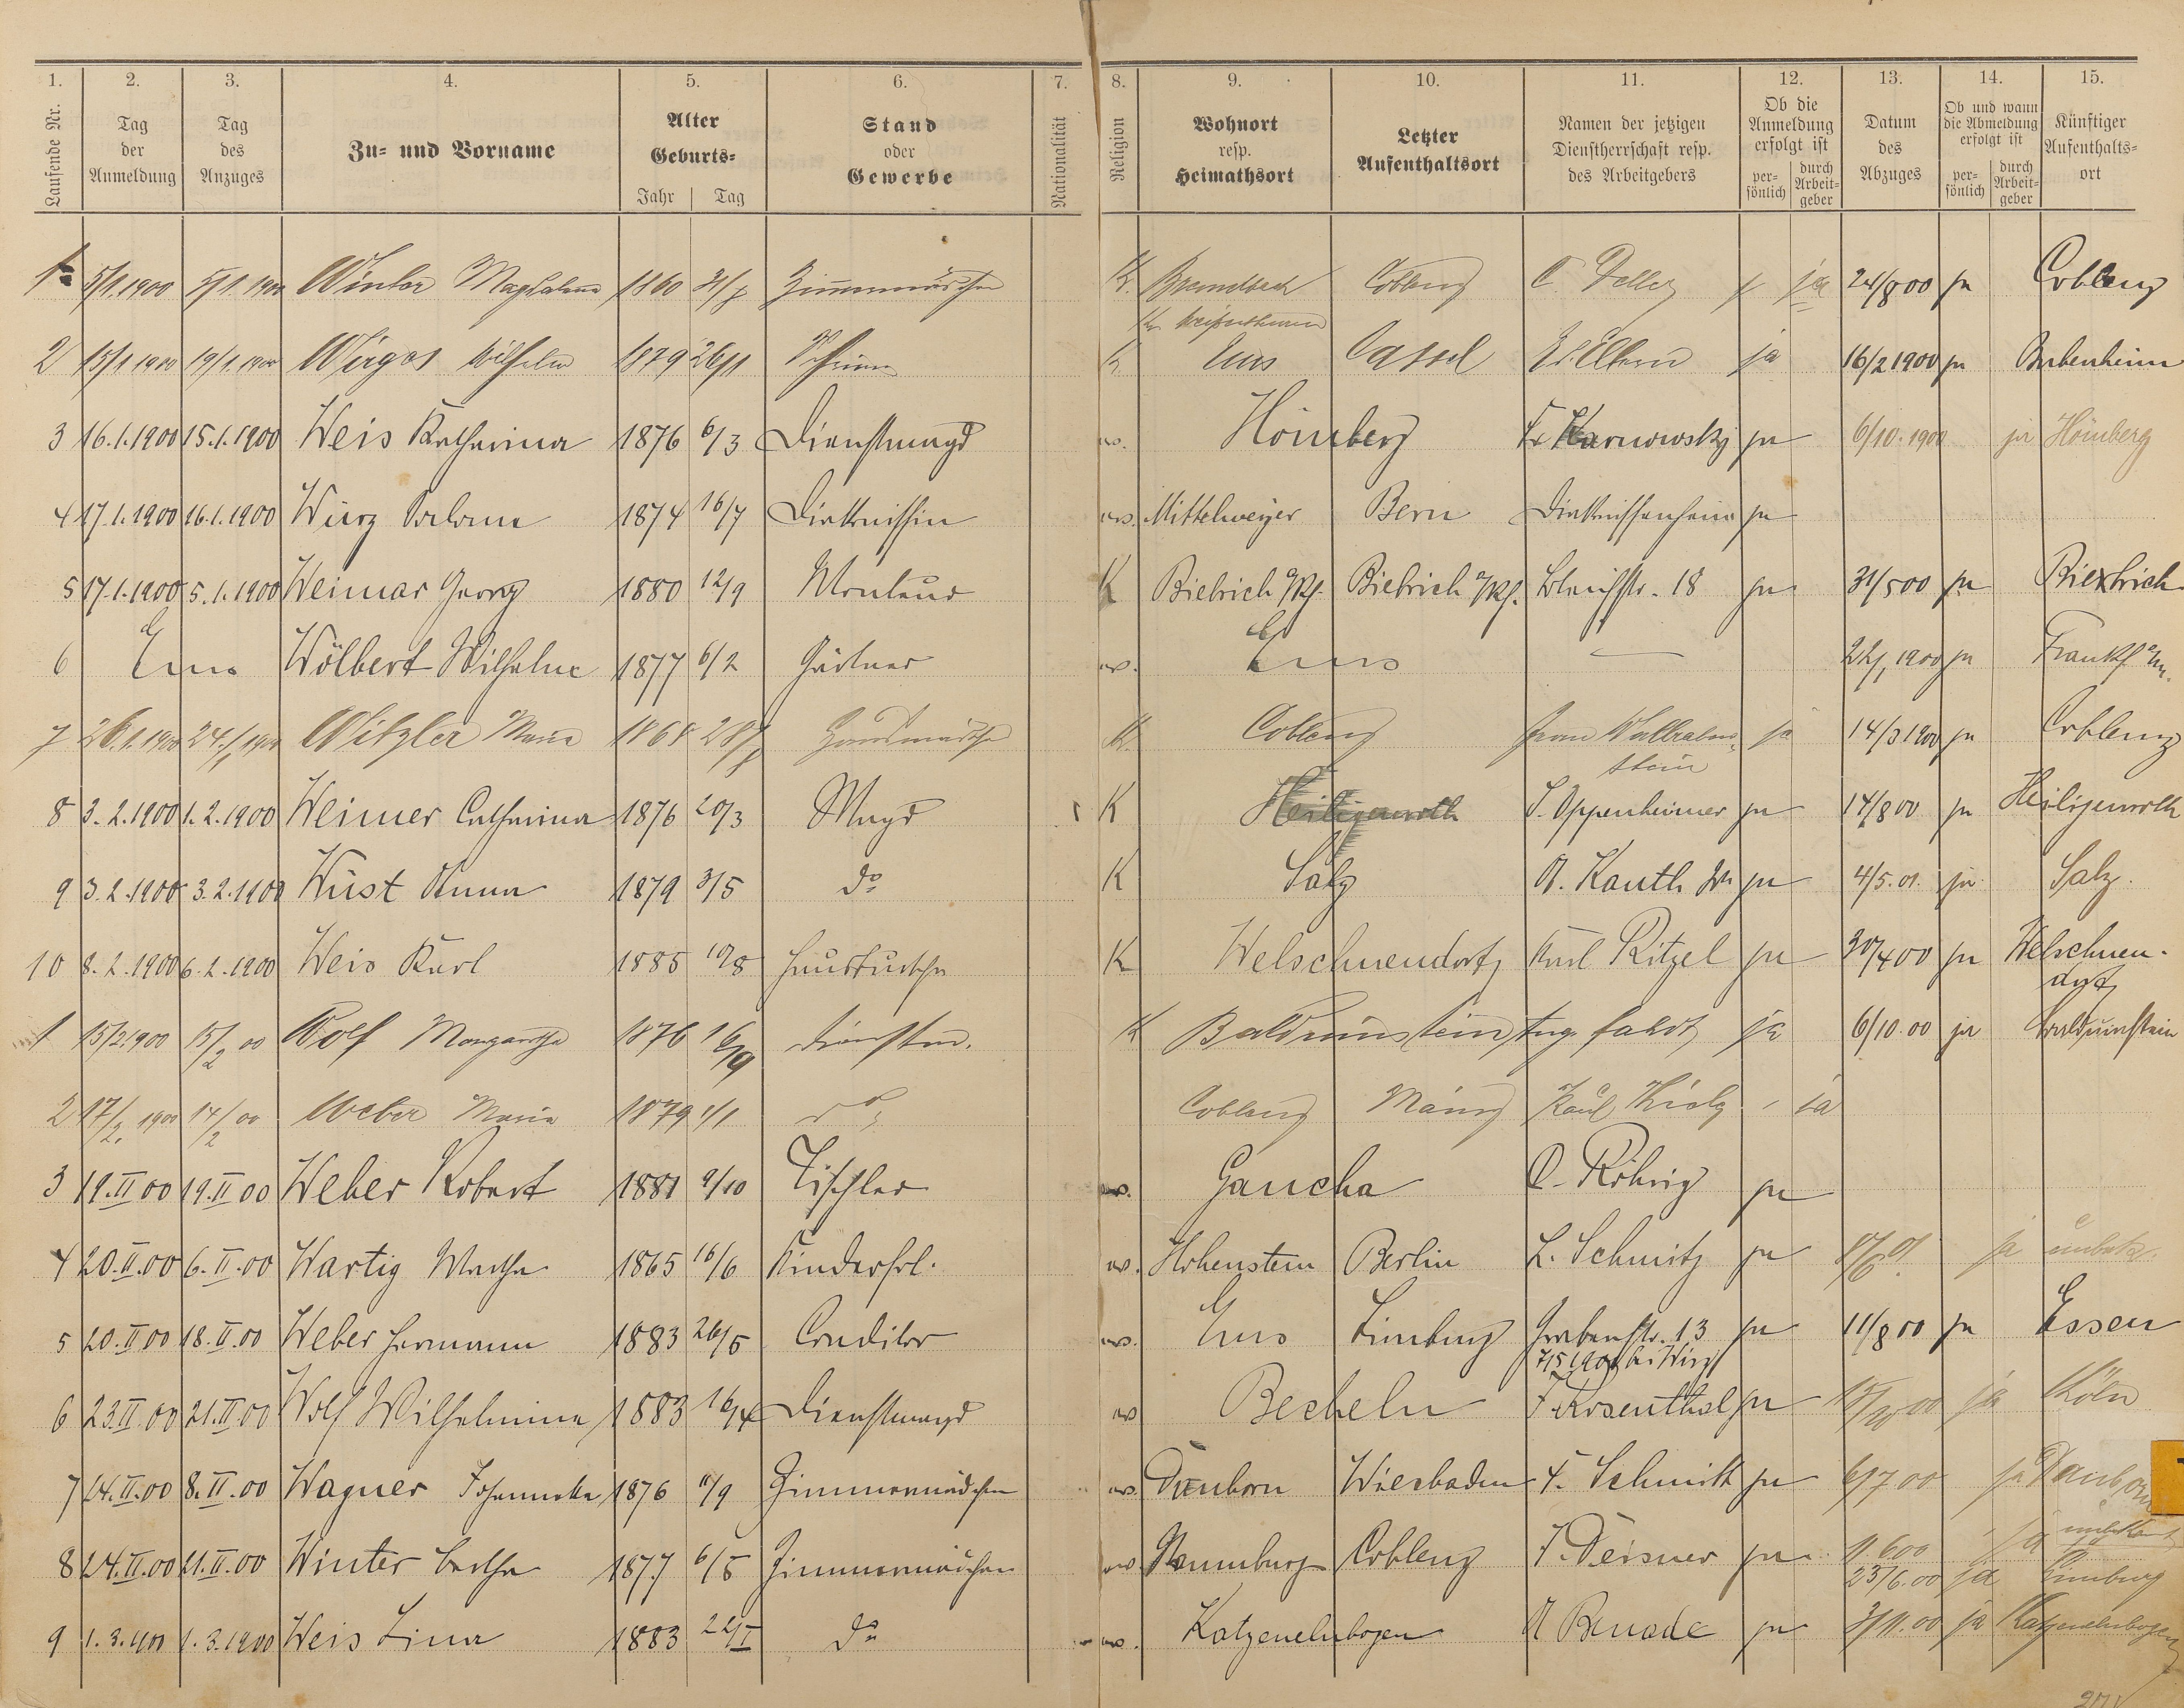 1. 2. 3. 4. 5. 6. 7. 8. 9. 10. 11. 12. 13. 14. 15.
Laufende Nr. Tag der Anmeldung Tag des Anzuges Zu- und Vorname Alter Geburts- Jahr Tag Stand oder Gewerbe Nationalität Religion Wohnort resp. Heimathsort Letzter Aufenthaltsort Namen der jetzigen Dienstherrschaft resp. des Arbeitgebers Ob die Anmeldung erfolgt ist persönlich durch Arbeitgeber Datum des Abzuges Ob und wann die Abmeldung erfolgt ist persönlich durch Arbeitgeber Künftiger Aufenthalts-ort
1 5/1.1900 5/1.1900 Winter Magdalena 1860 Zimmermädchen K. Coblenz ja 24/8 00 ja Coblenz
2 15/1 1900 19/1.1900 Wirges Wilhelm 1879 26/1 K Ems Cassel Eltern ja 16/2 1900 ja Bubenheim
3 16.1.1900 15.1.1900 Weis Katharina 1876 6/3 Dienstmagd ev. Hömberg Fr Karnowsky ja 6/10.1900 ja Hömberg
4 17.1.1900 16.1.1900 Würz Salome 1874 16/7 Diakonissin ev. Mittelweyer Bern Diakonissenheim ja
5 17.1.1900 5.1.1900 Weimar Georg 1880 12/9 Monteur K Biebrich a/Rh. Biebrich a/Rh. 18 ja 31/5 00 ja Biebrich
6 Ems Wölbert Wilhelm 1877 6/2 Gärtner ev. Ems — 22/1 1900 ja Frankf a/m.
7 26.1.1900 24./1 1900 Witzler Maria 1868 28/8 Hausmädchen K. Coblenz Frau Wallrabenstein ja 14/3 1900 ja Coblenz
8 3.2.1900 1.2.1900 Weimer Catharina 1876 20/3 Magd K Heiligenroth S. Oppenheimer ja 14/8 00 ja Heiligenroth
9 3.2.1900 3.2.1900 Wüst Anna 1879 3/5 do K Salz A. Kauth Ww ja 4/5.01. ja Salz.
10 8.2.1900 6.2.1900 Weis Karl 1885 10/8 Hausbursche K Welschneudorf Karl Ritzel ja 30/4 00 ja Welschneudorf
1 15/2 1900 15/2 00 Wolf Margaretha 1876 16/9 Dienstm. K Balduinstein ja 6/10.00 ja Balduinstein
2 17/2. 1900 14/2 00 Weber Maria 1879 1/1 do Coblenz Mainz Karl ja
3 19.II 00 19.II 00 Weber Robert 1881 9/10 Tischler ev. Gaucha O. Röhrig ja
4 20.II.00 6.II.00 Wartig Martha 1865 16/6 Kinderfrl. ev. Hohenstein Berlin L. Schmitz ja ja unbek.
5 20.II 00 18.II.00 Weber Hermann 1883 26/5 Conditor ev. Ems Limburg Grabenstr. 13 ja 11/8 00 ja Essen
7/5 1900 bei Wirz
6 23.II.00 21.II.00 Wolf Wilhelmine 1883 16/4 Dienstmagd ev Becheln F. Rosenthal ja ja Köln
7 24.II.00 8.II.00 Wagner Johannette 1876 11/9 Zimmermädchen ev. Dauborn Wiesbaden F. Schmitt ja 6/7 00 ja Dauborn
8 24.II.00 21.II.00 Winter Bertha 1877 6/5 Zimmermädchen ev Naumburg Coblenz F. Deisner ja 1 600 ja unbekannt
23/6.00 ja Limburg
9 1.3.1900 1.3.1900 Weis Lina 1883 22/I do ev. Katzenelnbogen A Benade ja 3/11.00 ja Katzenelnbogen